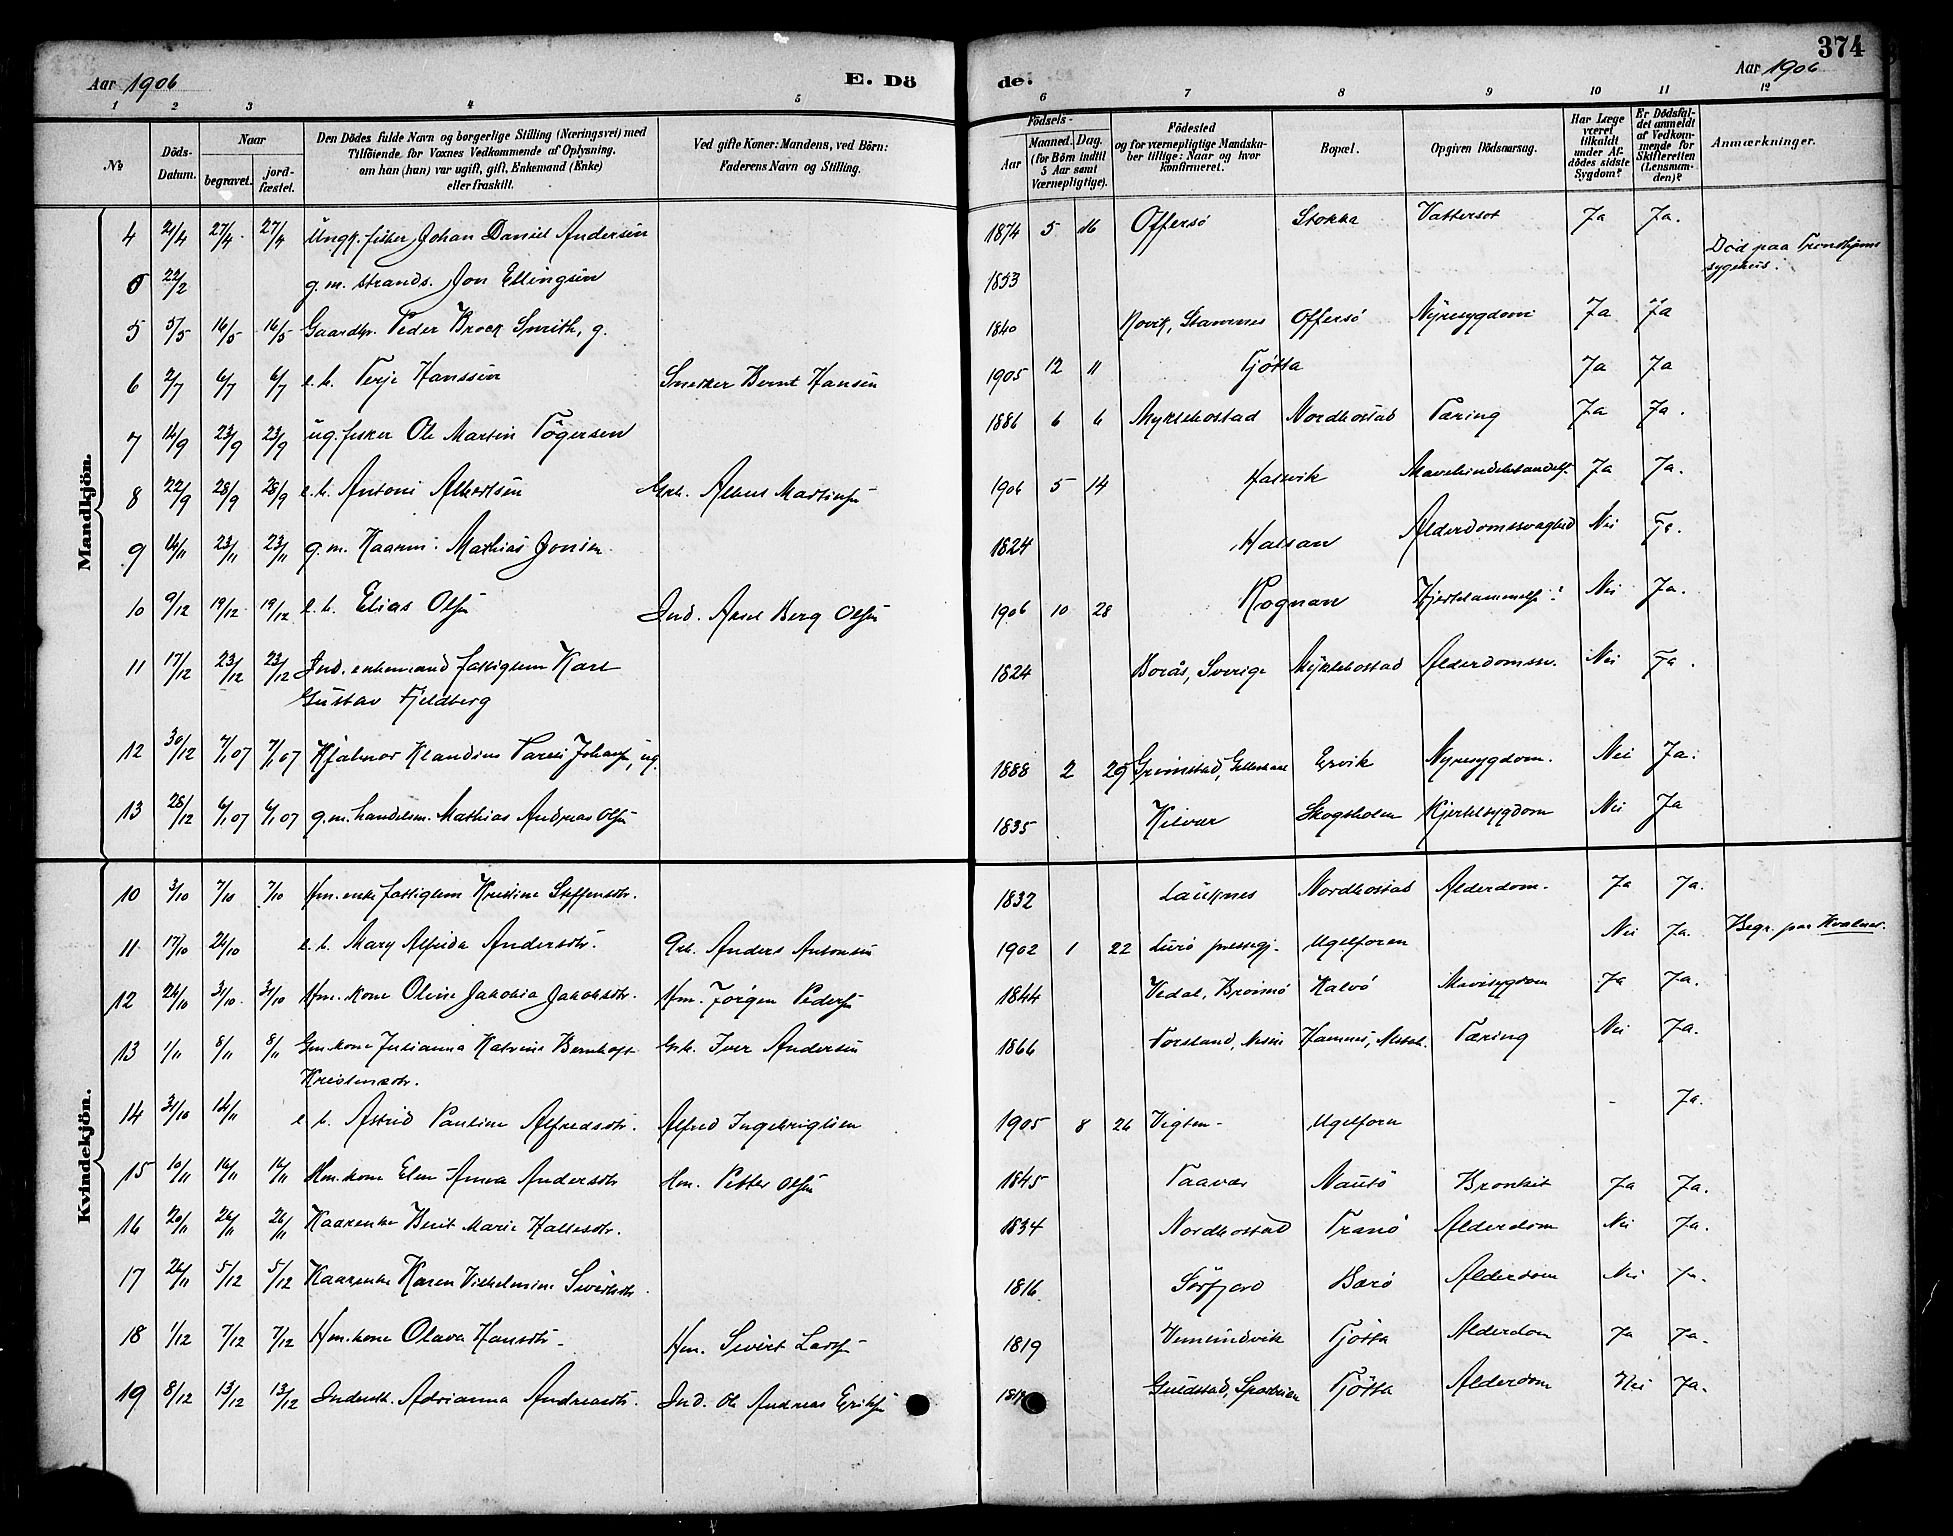 374
Aar 1906 E. Dö de. Aar 1906
1 2 3 4 5 6 7 8 9 10 11 12
№ Döds-Datum. Naar begravet. jordfæstet. Den Dödes fulde Navn og borgerlige Stilling (Næringsvei) med Tilföiende for Voxnes Vedkommende af Oplysning, om han (hun) var ugift, gift, Enkemand (Enke) eller fraskilt. Ved gifte Koner: Mandens, ved Börn: Faderens Navn og Stilling. Födsels- Aar Maaned. Dag. (for Börn indtil 5 Aar samt Værnepligtige). Födested og for værnepligtige Mandskaber tillige: Naar og hvor konfirmeret. Bopæl. Opgiven Dödsaarsag. Har Læge været tilkaldt under Afdödes sidste Sygdom? Er Dödsfaldet anmeldt af Vedkommende for Skifteretten (Lensmanden)? Anmærkninger.
Mandkjön.
4 21/4 27/4 27/4 Ungk. fisker Johan Daniel Andersen 1874 5 16 Offersö Stokka Vattersot Ja Ja.
22/2 g.m. strands. Jon Ellingsen 1853 Död paa Trondhjems sygehus.
5 5/5 16/5 16/5 Gaardbr. Peder Brock Smith, g. 1840 Rovik, Stamnes Offersö Nyresygdom Ja Ja
6 2/7 6/7 6/7 e.b. Terje Hanssen Snekker Bernt Hansen 1905 12 11 Tjötta Ja Ja
7 14/9 23/9 23/9 ug. fisker Ole Martin Tögersen 1886 6 6 Myklebostad Nordbostad Tæring Ja Ja.
8 22/9 28/9 28/9 e.b. Antoni Albertsen Grb. Albert Martins 1906 5 14 Halsvik Ja Ja.
9 14/11 23/11 23/11 g.m. Kaarm. Mathias Jonsen 1824 Halsan Alderdomssvaghed Nei Ja.
10 9/12 19/12 19/12 e.b. Elias Olsen Ind. Axel Berg Olsen 1906 10 28 Rognan Nei Ja.
11 17/12 23/12 23/12 Ind. enkemand fattiglem Karl
Gustav Fjeldberg 1824 Borås, Sverige Myklebostad Alderdomssv. Nei Ja.
12 30/12 7/1 07 7/1 07 Hjalmar Klaudius Johans, ug. 1888 2 29 Grimstad, Ervik Nyresygdom. Nei Ja.
13 28/12 6/1 07 6/1 07 g.m. handelsm. Mathias Andreas Olsen 1835 Kilvær Skogsholm Hjertesygdom Nei Ja
Kvindekjön.
10 3/10 7/10 7/10 Hm. enke fattiglem Kristine Steffensdtr. 1832 Lauknes Nordbostad Alderdom. Ja Ja.
11 17/10 26/10 e.b. Mary Alfrida Andersdtr. Grb. Anders Antonsen 1902 1 22 Lurö prestegj. Ugelforen Nei Ja. Begr. paa Kvalnes.
12 24/10 31/10 31/10 Hm. kone Oline Jakobia Jakobsdtr. Hm. Jörgen Peders 1844 Vedal, Brönnö Kalvö Mavesygdom Ja Ja.
13 1/11 8/11 8/11 Gm. kone Julianna Katrine Bernhoft
Kristensdtr. Grb. Iver Andersen 1866 Forsland, Nesne Hamnes, Tæring Nei Ja.
14 31/10 14/11 e.b. Astrid Pauline Alfredsdtr. Alfred Ingebrigtsen 1905 8 26 Vigten Ugelforen Ja.
15 10/11 16/11 16/11 Hm. kone Elen Anna Andersdtr Hm. Petter Olsen 1845 Taavær Nautö Bronkit Ja Ja.
16 20/11 26/11 26/11 Kaarenke Berit Marie Hallesdtr. 1834 Nordbostad Tranö Alderdom Nei Ja.
17 26/11 5/12 5/12 Kaarenke Karen Vilhelmine Sivertsdtr. 1816 Sörfjord Bærö Alderdom Nei Ja.
18 1/12 7/12 7/12 Hm. kone Olava Hansdtr. Hm. Sivert Lars 1819 Vennesundvik Tjötta Alderdom Ja Ja.
19 8/12 13/12 13/12 Inderstk. Adrianna Andreasdtr. Ind. Ole Andreas Eriks Guldstad, Tjötta Alderdom Nei Ja.